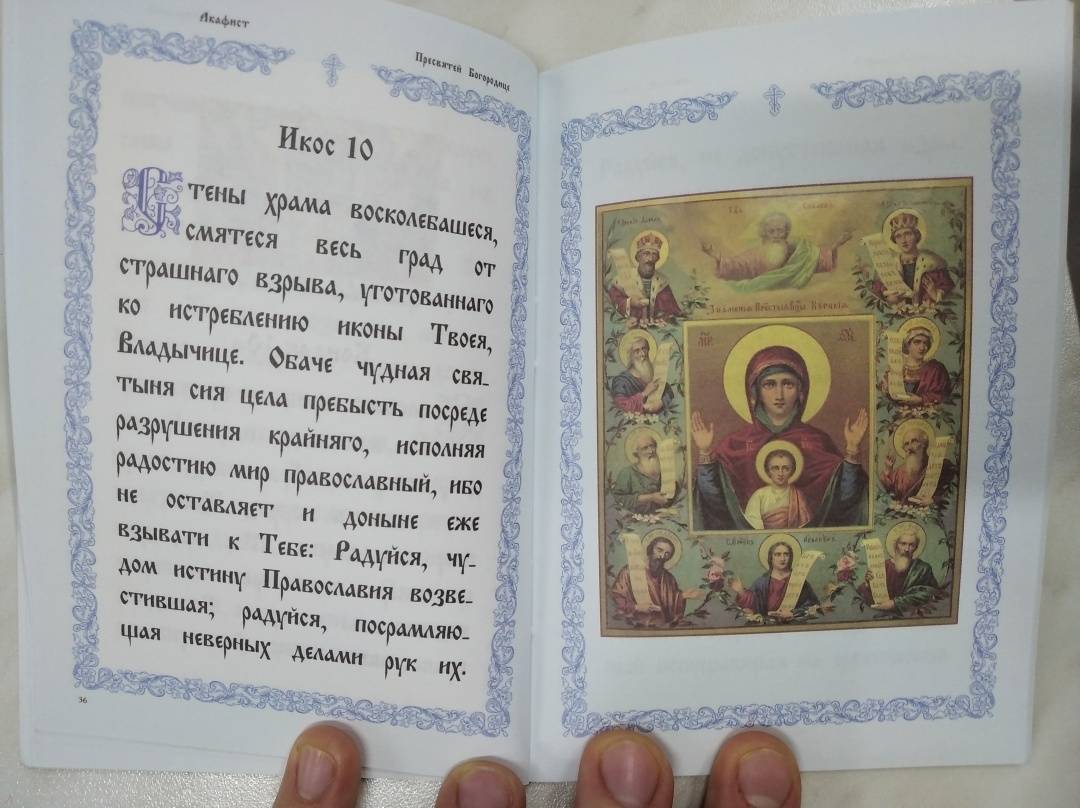 Акафист
Пресвятей Богородице
Икос 10
Стены храма восколебашеся,
смятеся весь град от
страшнаго взрыва, уготованнаго
ко истреблению иконы Твоея,
Владычице. Обаче чудная свя-
тыня сия цела пребысть посреде
разрушения крайняго, исполняя
радостию мир православный, ибо
не оставляет и доныне еже
взывати к Тебе: Радуйся, чу-
дом истину Православия возве-
стившая; радуйся, посрамляю-
щая неверных делами рук их.
36